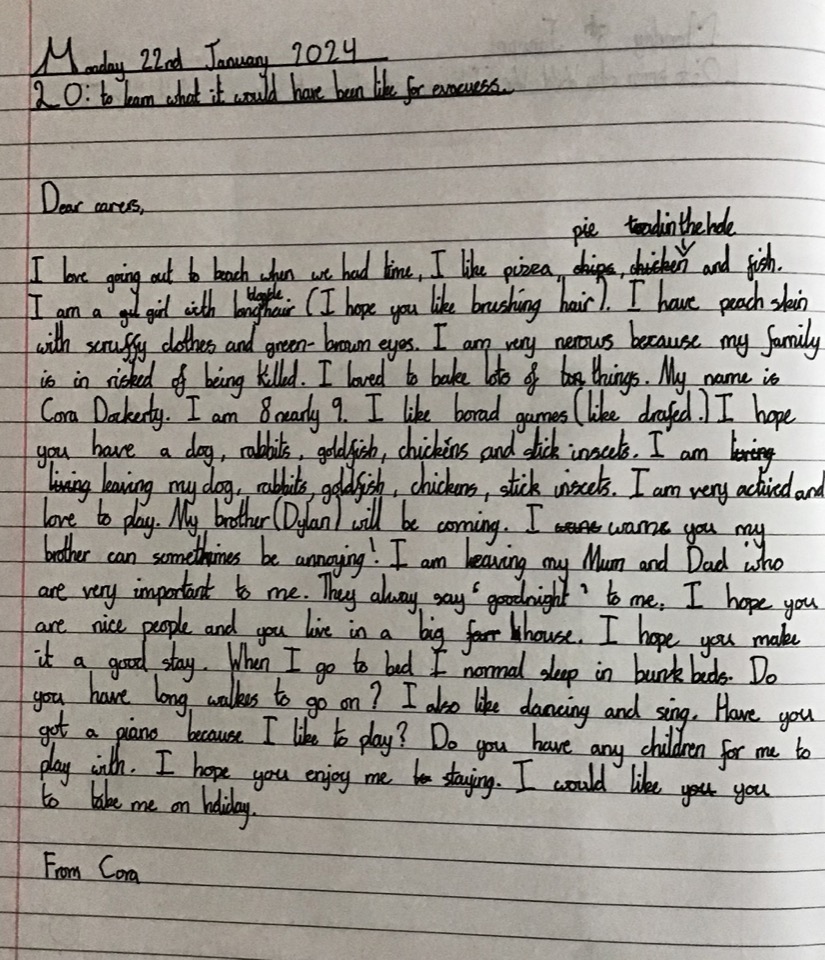 Monday 22nd January 2024
LO: to learn what it would have been like for evacuess.
Dear carers,
pie toadinthehole
I love going out to beach when we had time, I like pizza, chips, chicken and fish.
I am a girl with long blonde hair (I hope you like brushing hair). I have peach skin
with scruffy clothes and green-brown eyes. I am very nerous because my family
is in risked of being killed. I loved to bake lots of things. My name is
Cora Dockerty. I am 8 nearly 9. I like borad games (like drafed.) I hope
you have a dog, rabbits, goldfish, chickens and stick insects. I am
living leaving my dog, rabbits, goldfish, chickens, stick insects. I am very actived and
love to play. My brother (Dylan) will be coming. I warne you my
brother can somethimes be annoying! I am leaving my Mum and Dad who
are very important to me. They alway say 'goodnight' to me. I hope you
are nice people and you live in a big house. I hope you make
it a good stay. When I go to bed I normal sleep in bunk beds. Do
you have long walkes to go on? I also like dancing and sing. Have you
got a piano because I like to play? Do you have any children for me to
play with. I hope you enjoy me staying. I would like you you
to take me on holiday.
From Cora